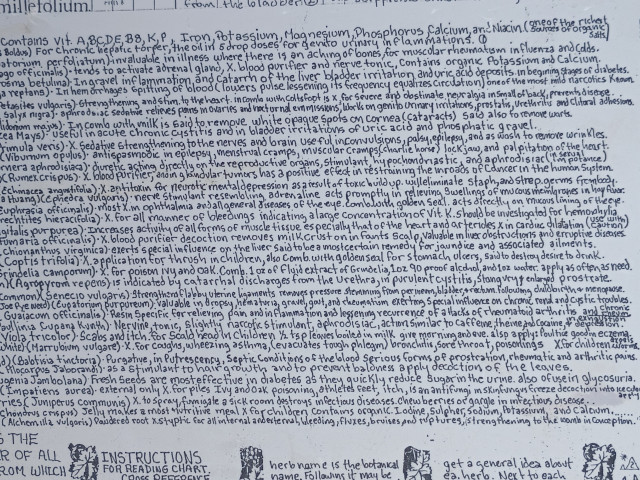 millefolium.
Contains Vit. A, BC, DE, B8, K, P, Iron, Potassium, Magnesium, Phosphorus Calcium, and Niacin (one of the richest sources of organic salts)
Boldos) For Chronic hepatic torper, the oil in 5 drop doses for genito urinary inflammations.
atorium perfoliatum) invaluable in illness where there is an aching of bones, for muscular rheumatism influenza and Colds.
ago officinalis) - tends to activate adrenal gland, X. blood purifier and nerve tonic, Contains organic Potassium and Calcium.
osma betulina) In gravel inflammation, and Catarrh of the liver bladder irritation and uric acid deposits. in beginning stages of diabetes.
In hemorrhages Spitting of blood (lowers pulse lessening its frequency equalizes circulation) one of the most mild narcotics known.
etasites vulgaris) - Strengthening and stim. to the heart. in Comb with Coltsfoot is X. for severe and obstinate neuralgia in Small of back, prevents disease.
Salyx nigra) - aphrodisiac Sedative relieves pains in Ovaries and nocturnal emissions, works on genito urinary irritations, prostatis, Urethritis and Clitoral adhesions.
lidonium majus) In Comb with milk is Said to remove white opaque spots on Cornea (Cataracts) Said also to remove warts.
Zea Mays) - useful in acute Chronic Cystitis and in bladder irritations of Uric acid and phosphatic gravel.
rimula veris) - X. Sedative strengthening to the nerves and brain useful in Convulsions, palsy, epilepsy, and as a wash to remove wrinkles.
(Viburnum opulus) - antispasmodic in epilepsy, menstrual Cramps, muscular Cramps (Charlie horse) lockjaw, and palpitation of the heart.
rnera aphrodisiaca) diuretic acting directly on the reproductive organs, Stimulant, hypochondriastic, and aphrodisiac (in impotance)
(Rumex Crispus) X. blood purifier, and in glandular tumors has a positive effect in restraining the inroads of Cancer in the human System.
Echinacea angustifolia) X. antitoxin for neurotic mental depression as a result of toxic build up will eliminate Staph and Strep germs
(Ephedra vulgaris) nerve Stimulant resembling adrenaline acts promptly in relieving Swellings of mucus membranes in hay fever.
Euphrasia officinalis) most X. in Ophthalmia and all general diseases of the eye. Comb. with golden seal. acts directly on mucous lining of the eye.
rechtites hieracifolia) - X. for all manner of bleedings indicating a large Concentration of Vit K. Should be investigated for hemophilia
igitalis purpurea) Increases activity of all forms of muscle tissue especially that of the heart and arterioles X. in Cardiac dilatation (use with caution)
Fumaria officinalis) X. blood purifier decoction removes milk Crust on infants Scalp, Valuable in liver obstructions and eruptious diseases.
Chionanthus virginica) exerts special influence on the liver Said to be a most certain remedy for jaundice and associated ailments.
Coptis trifolia) X. application for thrush in Children, also Comb. with golden seal for Stomach ulcers, Said to destroy desire to drink.
Grindelia camporum) - X. for poison ivy and oak Comb. 1oz of fluid extract of Grindelia, 1oz 90 proof alcohol, and 1oz water apply as often as need.
(Agropyrum repens) is indicated by Catarrhal discharges from the Urethra, in purulent Cystitis, strangury & enlarged prostrate.
Common) (Senecio vulgaris) Strengthens flabby uterine ligaments removes pressure Stemming from perineum, bladder & rectum following childbirth & menopause.
Joe Pye weed) (Eupatorium purpureum) Valuable in dropsy, hematuria, growth, gout, and rheumatism, exerting Special influence on chronic renal and Cystic troubles.
Guaiacum officinalis) Resin Specific for relieving pain and in inflammation and lessening recurrence of attacks of rheumatoid arthritis and
aullinia Cupana Kunth) Nervine, tonic, slightly narcotic stimulant, aphrodisiac, action Similar to Caffeine, theine and Cocaine
Viola tricolor) Scabs and itch, for Scald head in Children ½ tsp leaves boiled in milk, give morning and eve. also apply Poultice good in eczema.
White) (Marrubium vulgare) X. for Coughs, wheezing asthma, (evacuates tough phlegm) bronchitis, Sore throat, poisonings X for Children
d) (Baptisia tinctoria) Purgative, in Putrescency, Septic Conditions of the blood Serious forms of prostration, rheumatic and arthritic pains.
(Pilocarpus Jaborandi) as a Stimulant to hair growth and to prevent baldness apply decoction of the leaves.
ugenia Jambolana) Fresh Seeds are most effective in diabetes as they quickly reduce Sugar in the urine. also of use in glycosuria.
(Impatiens aurea) external only X. for piles Ivy and Oak poisoning, athletes feet, itch, is an antifungi in Skin fungus freeze decoction into ice
ries (Juniperus Communis) X. to Spray, fumigate a Sick room destroys infectious diseases. Chew berries or gargle in infectious disease.
Chondrus crispus) Jelly makes a most nutritive meal X for Children Contains organic. Iodine, Sulpher, Sodium, Potassium, and Calcium.
(Alchemilla vulgaris) Powdered root X styptic for all internal and external, bleeding, fluxes, bruises and ruptures, strengthening to the womb in Conception.
S THE
R OF ALL
FROM WHICH
INSTRUCTIONS
FOR READING CHART.
CROSS REFERENCE
herb name is the botanical
name. Following it may be
get a general idea about
ea. herb. Next to each